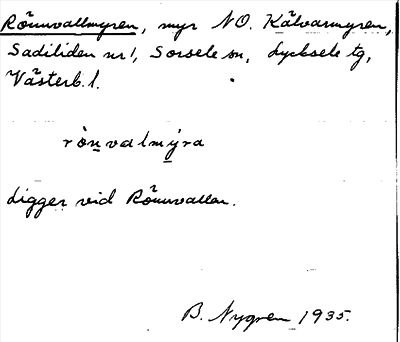 Rönnvallmyren, myr NO. Kälvarmyren,
Sadiliden nr 1, Sorsele sn, Lycksele tg,
Västerb. l.
rönvalmýra
Ligger vid Rönnvallen.
B. Nygren 1935.